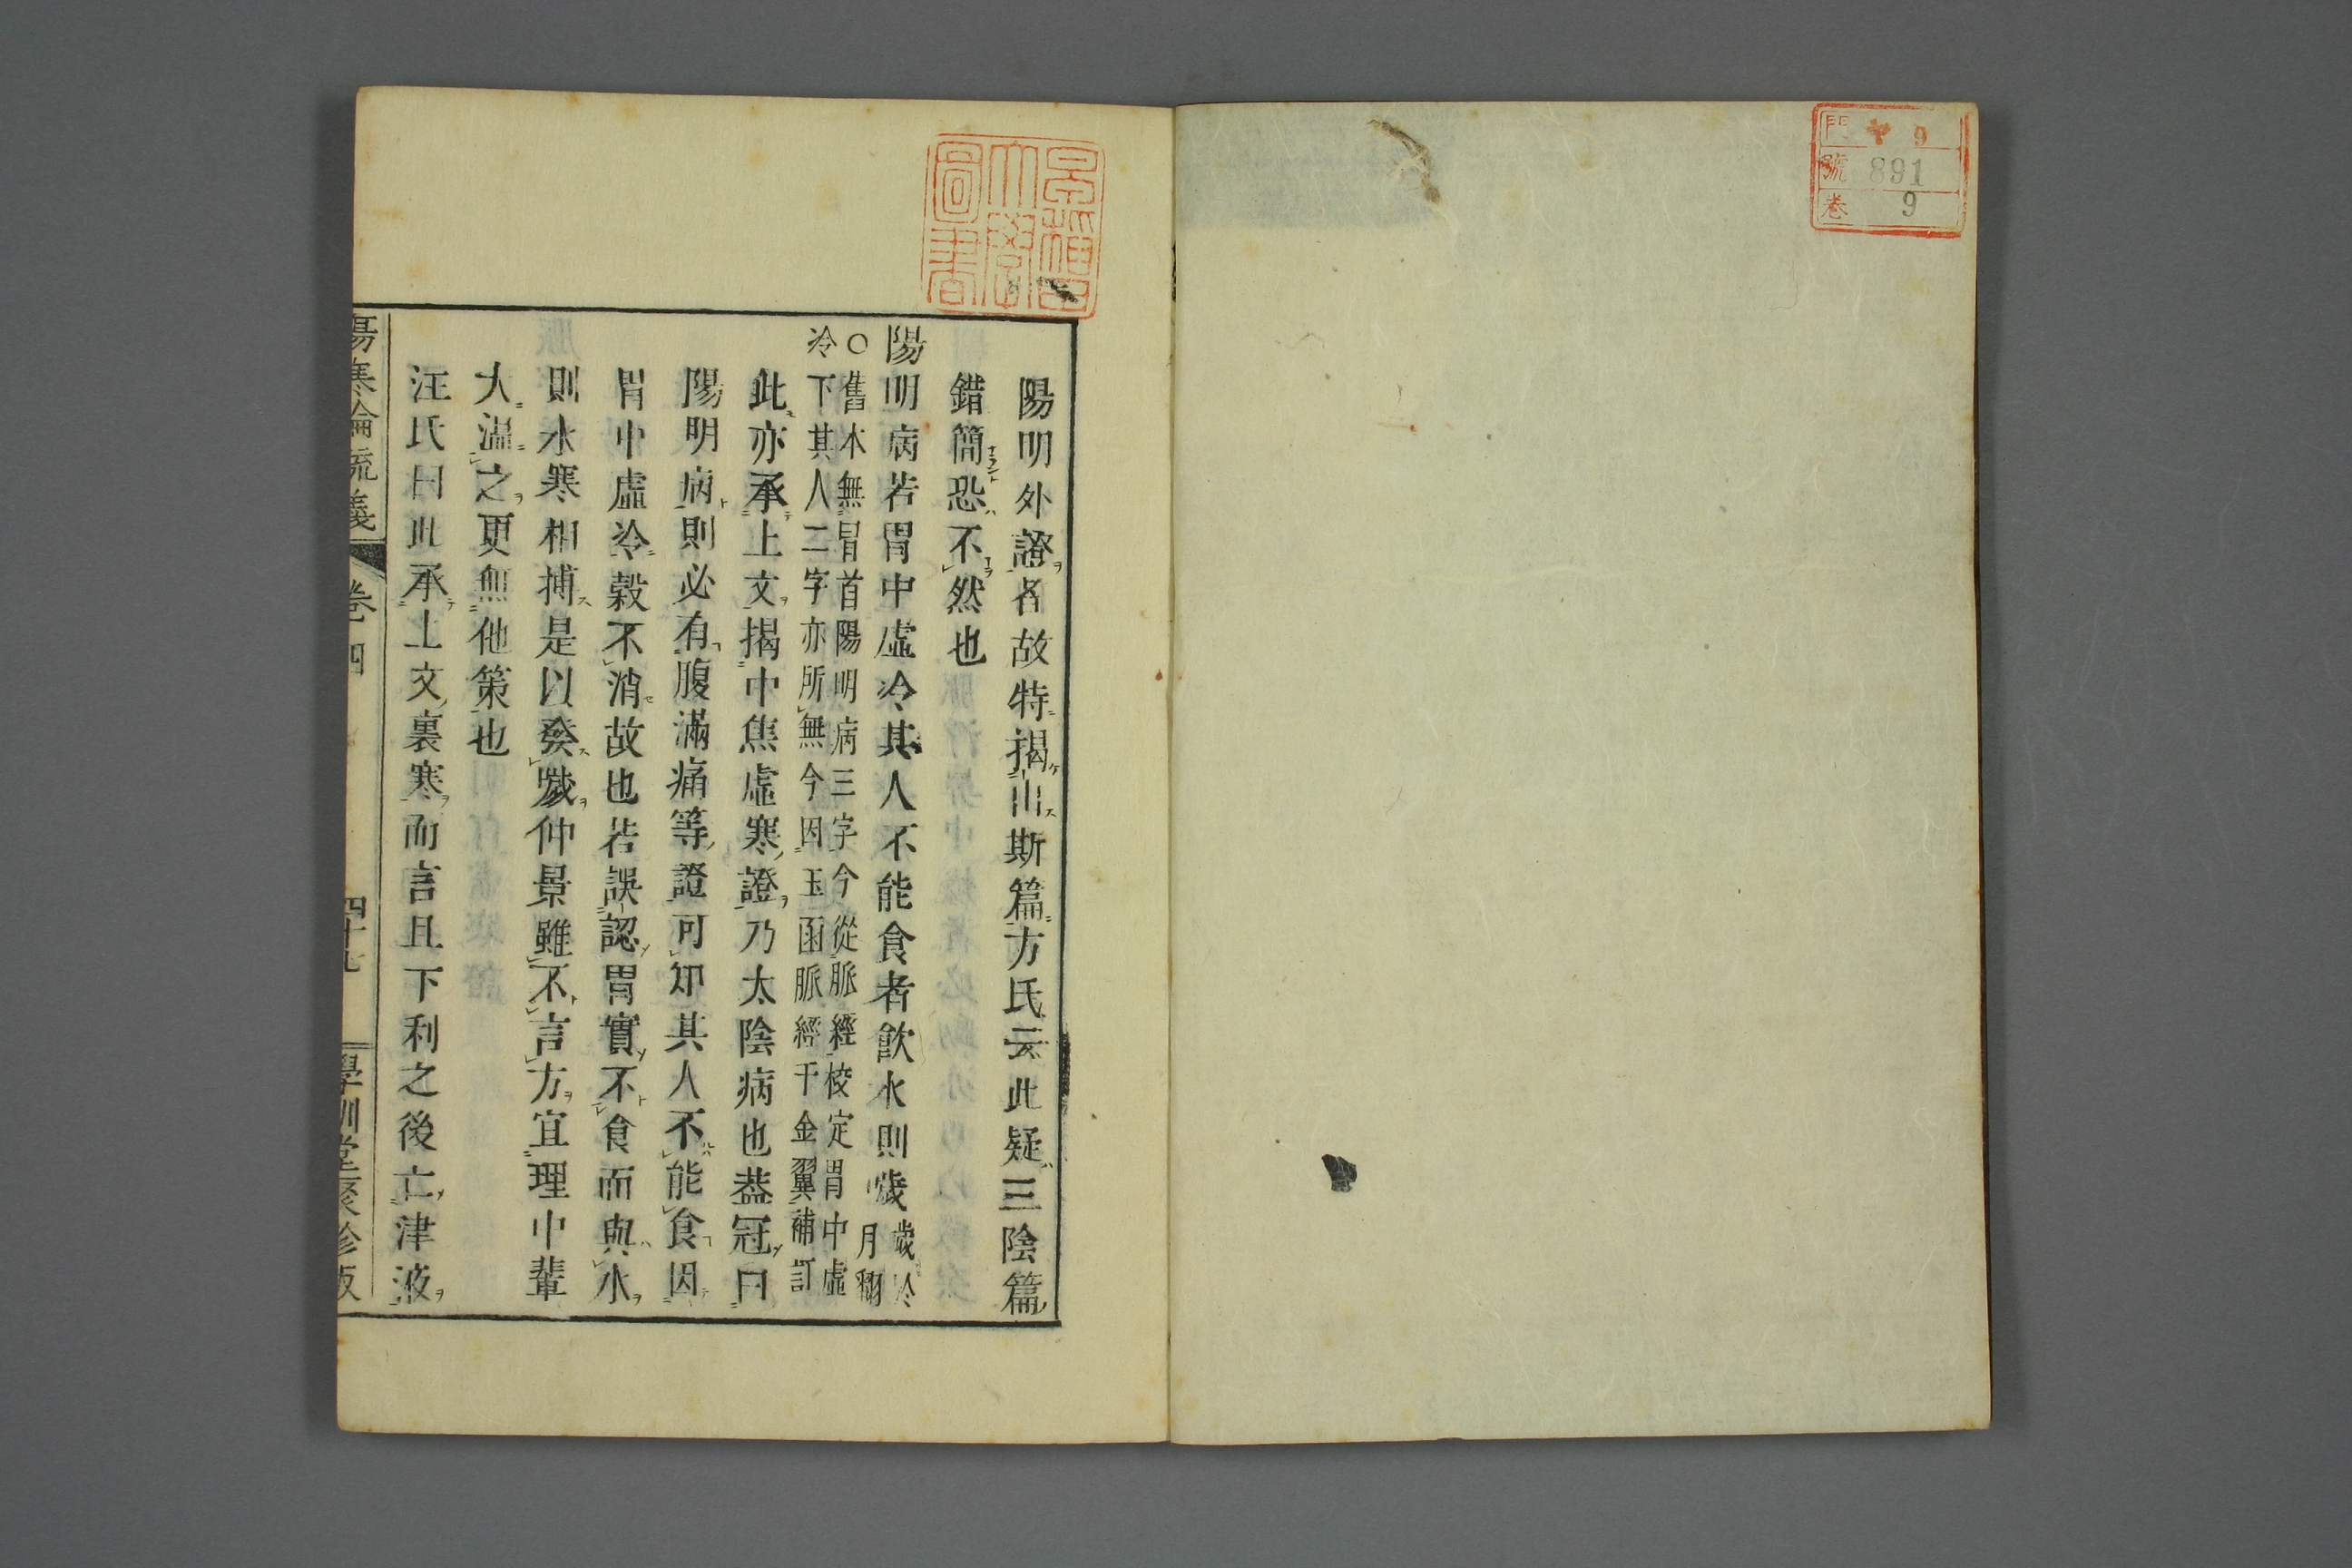 門 9
號 891
卷 9
早稻田大學圖書
陽明外證者故特揭出斯篇方氏云此疑三陰篇
錯簡恐不然也
陽明病若胃中虛冷其人不能食者飲水則噦
歲冷
月翻
○舊本無冒首陽明病三字今從脈經校定胃中虛
冷下其人二字亦所無今因玉函脈經千金翼補訂
此亦承上文揭中焦虛寒證乃太陰病也蓋冠曰
陽明病則必有腹滿痛等證可知其人不能食因
胃中虛冷穀不消故也若誤認胃實不食而與水
則水寒相摶是以發噦仲景雖不言方宜理中輩
大溫之更無他策也
汪氏曰此承上文裏寒而言且下利之後亡津液
傷寒論疏義 卷四 四十七 學訓堂聚珍版